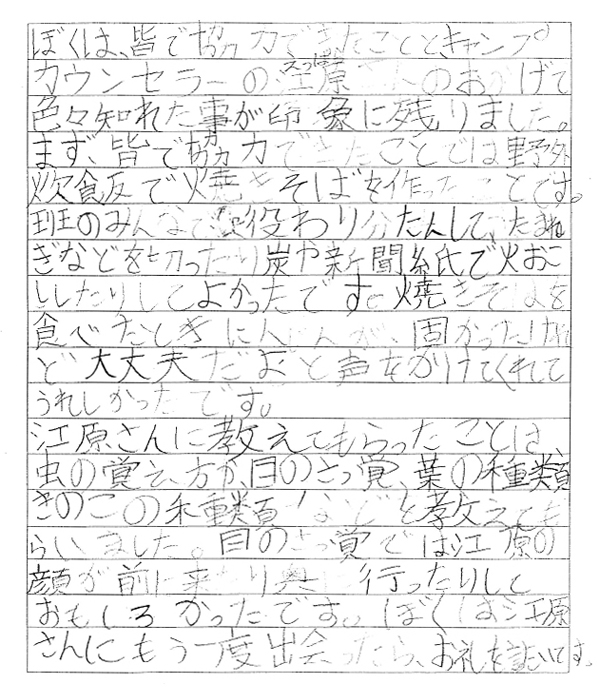 ぼくは、皆で協力できたことと、キャンプ
カウンセラーの江原さんのおかげで
色々知れた事が印象に残りました。
まず、皆で協力できたことでは野外
炊飯で焼きそばを作ったことです。
班のみんなで役わり分たんして、たまね
ぎなどを切ったり炭や新聞紙で火おこ
ししたりしてよかったです。焼きそばを
食べたときにんじんが、固かったけれ
ど大丈夫だよと声をかけてくれて
うれしかったです。
江原さんに教えてもらったことは
虫の覚え方が、目のさっ覚、葉の種類
きのこの種類などを教えても
らいました。目のさっ覚では江原の
顔が前に来たり奥に行ったりして
おもしろかったです。ぼくは江原
さんにもう一度出会ったら、お礼を言いたいです。